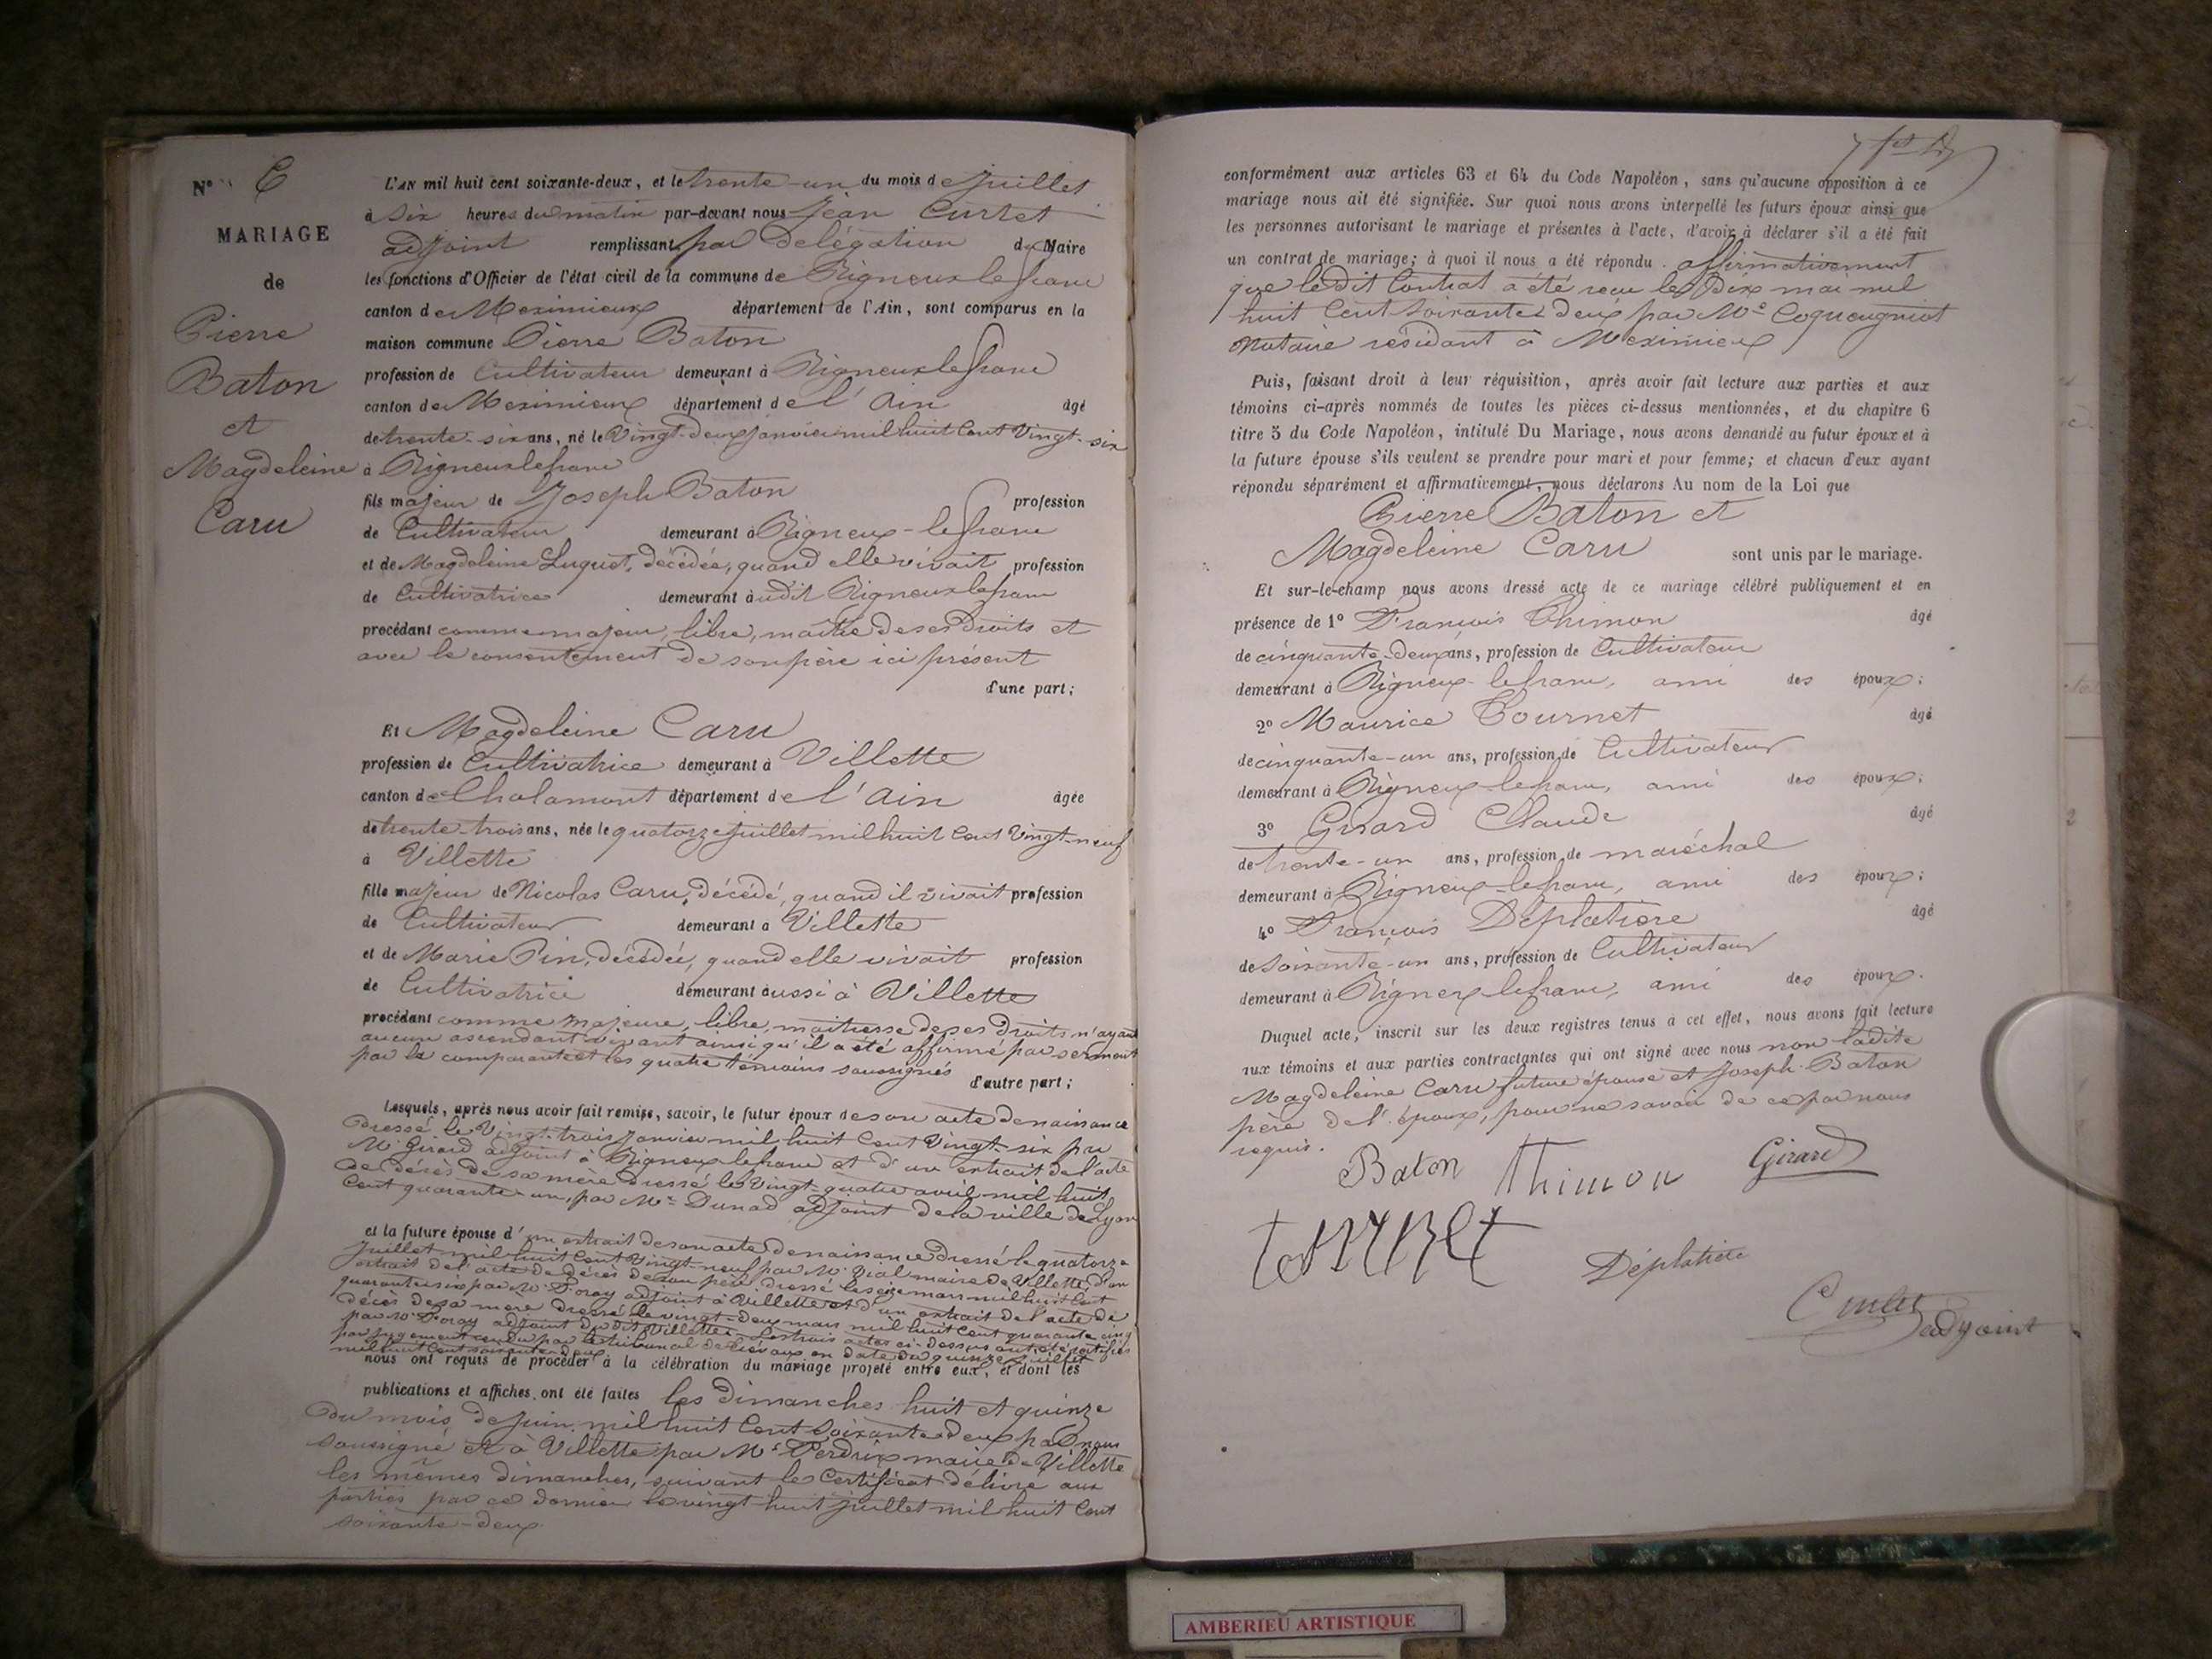 N° 6
MARIAGE
de
Pierre
Baton
et
Magdeleine
Caru
L'AN mil huit cent soixante-deux, et le trente-un du mois de juillet
à six heures du matin par-devant nous Jean Curtet
adjoint remplissant par délégation du Maire
les fonctions d'Officier de l'état civil de la commune de Rigneux le franc
canton de Meximieux département de l'Ain, sont comparus en la
maison commune Pierre Baton
profession de Cultivateur demeurant à Rigneux le franc
canton de Meximieux département de l'Ain âgé
de trente-six ans, né le Vingt-deux janvier mil huit Cent Vingt-six
à Rigneux le franc
fils majeur de Joseph Baton profession
de Cultivateur demeurant à Rigneux-le franc
et de Magdeleine Luquet, décédée, quand elle vivait profession
de Cultivatrice demeurant audit Rigneux le franc
procédant comme majeur, libre, maître de ses droits et
avec le consentement de son père ici présent
d'une part;
Et Magdeleine Caru
profession de Cultivatrice demeurant à Villette
canton de Chalamont département de l'Ain âgée
de trente-trois ans, née le quatorze juillet mil huit Cent Vingt-neuf
à Villette
fille majeur de Nicolas Caru, décédé, quand il vivait profession
de Cultivateur demeurant a Villette
et de Marie Pin, décédée, quand elle vivait profession
de Cultivatrice demeurant aussi à Villette
procédant comme majeure, libre, maitresse de ses droits n'ayant
aucun ascendant vivant ainsi qu'il a été affirmé par serment
par la comparante et les quatre témoins soussignés
d'autre part;
Lesquels, après nous avoir fait remise, savoir, le futur époux de son acte de naissance
dressé le Vingt-trois janvier mil huit Cent Vingt-six par
Mr Girard adjoint à Rigneux le franc et d'un extrait de l'acte
de décès de sa mère dressé le Vingt-quatre avril mil huit
Cent quarante-un, par Mr Dunod adjoint de la ville de Lyon
et la future épouse d'un extrait de son acte de naissance dressé le quatorze
juillet mil huit Cent Vingt-neuf par Mr Vial maire de Villette, d'un
extrait de l'acte de décès de son père dressé le seize mars mil huit Cent
quarante six par Mr Foray adjoint à Villette et d'un extrait de l'acte de
décès de sa mère dressé le vingt-deux mars mil huit Cent quarante cinq
par Mr Foray adjoint dudit Villette. Les trois actes ci-dessus ont été rectifiés
par jugement rendu par le tribunal de Trévoux en date du quinze juillet
mil huit Cent soixante deux
nous ont requis de procéder à la célébration du mariage projeté entre eux, et dont les
publications et affiches ont été faites les dimanches huit et quinze
du mois de juin mil huit Cent Soixante deux par nous
soussigné et à Villette par Mr Perdrix maire de Villette
les mêmes dimanches, suivant le Certificat délivré aux
parties par ce dernier le vingt huit juillet mil huit Cent
soixante-deux.
conformément aux articles 63 et 64 du Code Napoléon, sans qu'aucune opposition à ce
mariage nous ait été signifiée. Sur quoi nous avons interpellé les futurs époux ainsi que
les personnes autorisant le mariage et présentes à l'acte, d'avoir à déclarer s'il a été fait
un contrat de mariage; à quoi il nous a été répondu affirmativement
que le dit Contrat a été reçu le Dix mai mil
huit Cent Soixante deux par Me Coqueugniot
Notaire résidant à Meximieux
Puis, faisant droit à leur réquisition, après avoir fait lecture aux parties et aux
témoins ci-après nommés de toutes les pièces ci-dessus mentionnées, et du chapitre 6
titre 5 du Code Napoléon, intitulé Du Mariage, nous avons demandé au futur époux et à
la future épouse s'ils veulent se prendre pour mari et pour femme; et chacun d'eux ayant
répondu séparément et affirmativement, nous déclarons Au nom de la Loi que
Pierre Baton et
Magdeleine Caru sont unis par le mariage.
Et sur-le-champ nous avons dressé acte de ce mariage célébré publiquement et en
présence de 1° François Thimon âgé
de cinquante-deux ans, profession de Cultivateur
demeurant à Rigneux-le franc, ami des époux;
2° Maurice Tournet âgé
de cinquante-un ans, profession de Cultivateur
demeurant à Rigneux le franc, ami des époux;
3° Girard Claude âgé
de trente-un ans, profession de maréchal
demeurant à Rigneux-le franc, ami des époux;
4° François Déplatière âgé
de Soixante-un ans, profession de Cultivateur
demeurant à Rigneux le franc, ami des époux.
Duquel acte, inscrit sur les deux registres tenus à cet effet, nous avons fait lecture
aux témoins et aux parties contractantes qui ont signé avec nous non ladite
Magdeleine Caru future épouse et Joseph Baton
père de l'époux, pour ne savoir de ce par nous
requis.
Baton Thimon Girard
tournet
Déplatière
Curtet
adjoint
AMBERIEU ARTISTIQUE